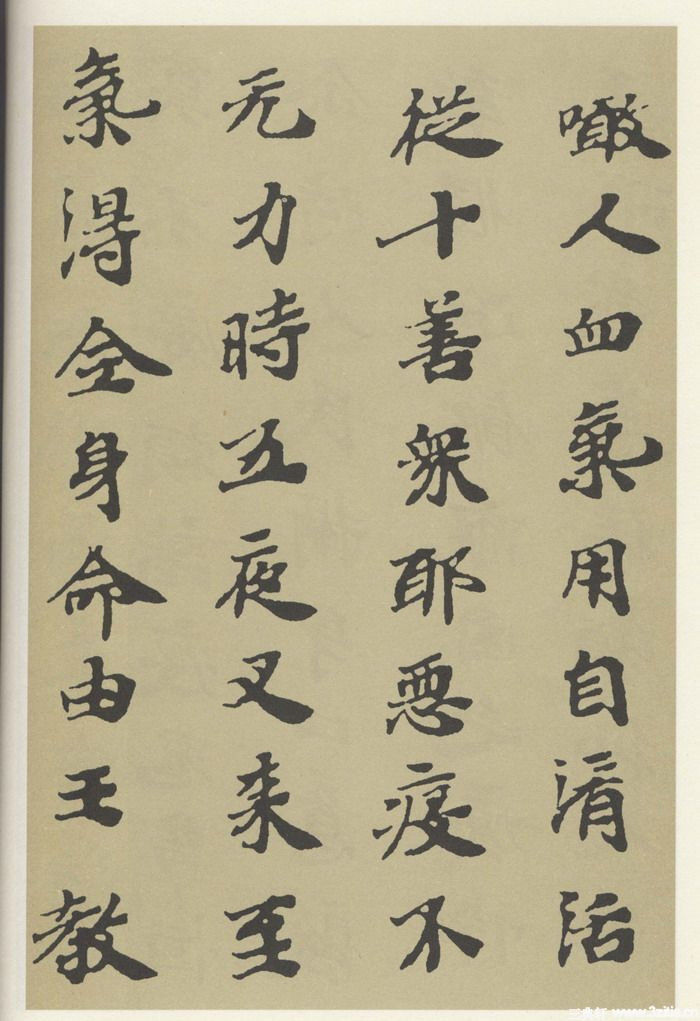 噉人血氣用自濟活
從十善眾耶惡疫不
无力時五夜叉来至
氣得全身命由王教